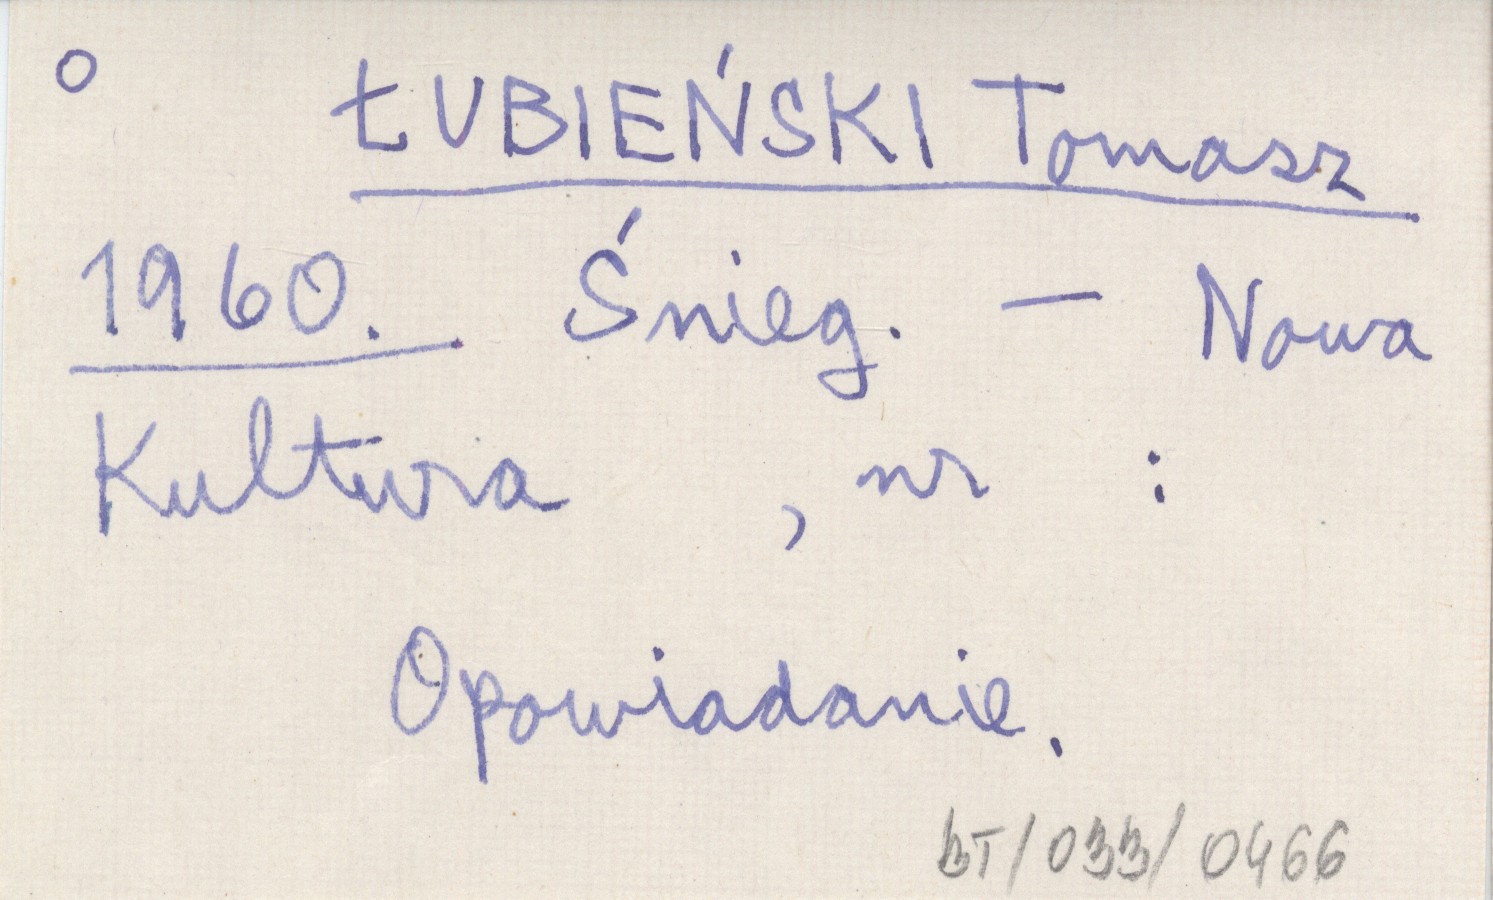 o ŁUBIEŃSKI Tomasz
1960. Śnieg. — Nowa
Kultura , nr :
Opowiadanie.
BT/033/0466